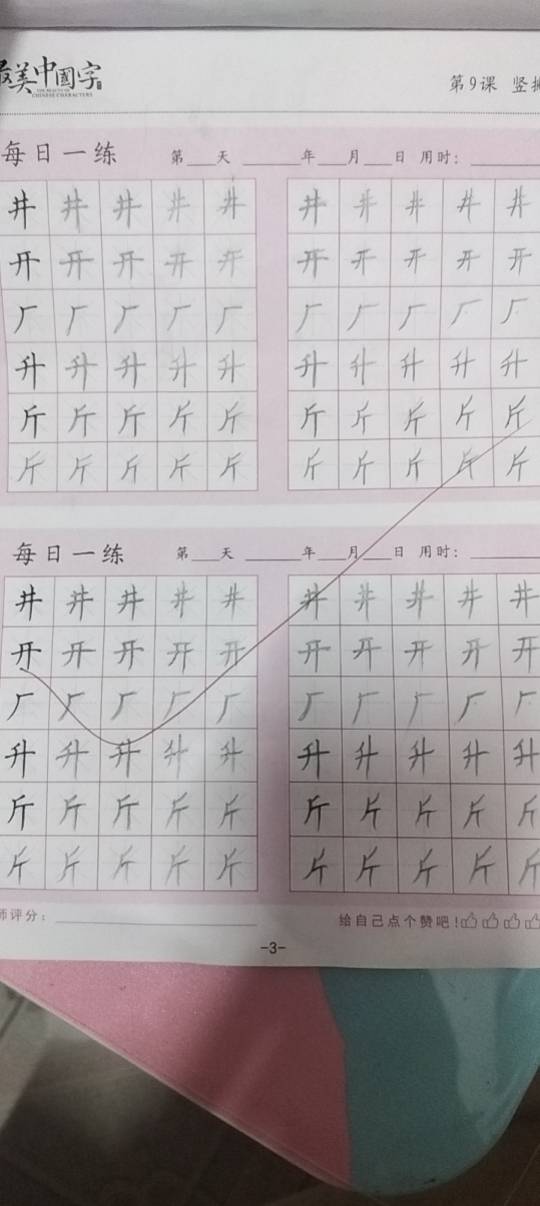 最美中国字
THE BEAUTY OF
CHINESE CHARACTERS
第9课 竖撇
每日一练 第___天 ______年___月___日 用时:
井井井井井 井井井井井
开开开开开 开开开开开
厂厂厂厂厂 厂厂厂厂厂
升升升升升 升升升升升
斤斤斤斤斤 斤斤斤斤斤
斤斤斤斤斤 斤斤斤斤斤
每日一练 第___天 ______年___月___日 用时:
井井井井井 井井井井井
开开开开开 开开开开开
厂厂厂厂厂 厂厂厂厂厂
升升升升升 升升升升升
斤斤斤斤斤 斤斤斤斤斤
斤斤斤斤斤 斤斤斤斤斤
师评分: 给自己点个赞吧!
-3-